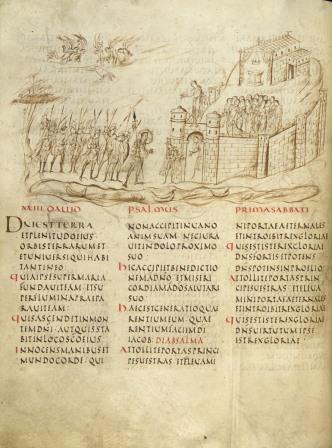 XXIII DAUID PSALMUS PRIMA SABBATI
DNI EST TERRA
ET PLENITUDO EIUS
ORBIS TERRARUM ET
ET UNIUERSI QUI HABI
TANT IN EO
QUIA IPSE SUPER MARIA
FUNDAUIT EAM ET SU
PER FLUMINA PRAEPA
RAUIT EAM
QUIS ASCENDIT IN MON
TEM DNI AUT QUIS STA
BIT IN LOCO SCO EIUS
INNOCENS MANIBUS ET
MUNDO CORDE QUI
NON ACCEPIT IN UANO
ANIMAM SUAM NEC IURA
UIT IN DOLO PROXIMO
SUO
HIC ACCIPIET BENEDICTIO
NEM A DNO ET MISERI
CORDIAM A DO SALUTARI
SUO
HAEC EST GENERATIO QUAE
RENTIUM EUM QUAE
RENTIUM FACIEM DI
IACOB DIAPSALMA
ATTOLLITE PORTAS PRINCI
PES UESTRAS ET ELEUAMI
NI PORTAE AETERNALES
ET INTROIBIT REX GLORIAE
QUIS EST ISTE REX GLORIAE
DNS FORTIS ET POTENS
DNS POTENS IN PROELIO
ATTOLLITE PORTAS PRIN
CIPES UESTRAS ET ELEUA
MINI PORTAE AETERNALES
ET INTROIBIT REX GLORIAE
QUIS EST ISTE REX GLORIAE
DNS UIRTUTUM IPSE
EST REX GLORIAE